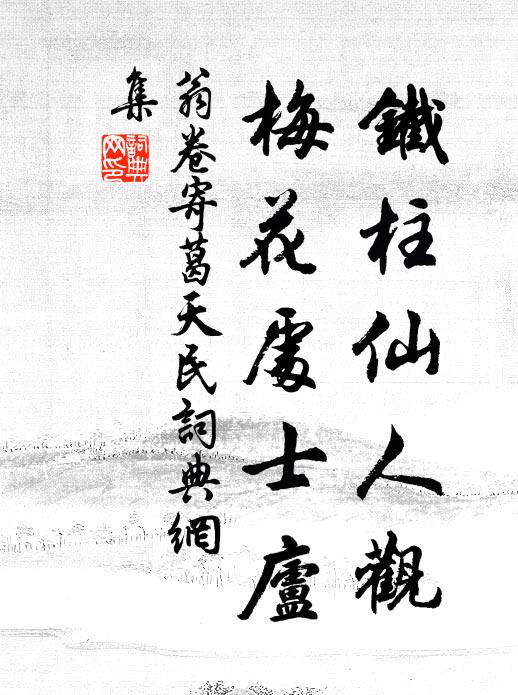 鐵柱仙人觀
梅花處士廬
翁卷寄葛天民詞典網
集
詞典網印